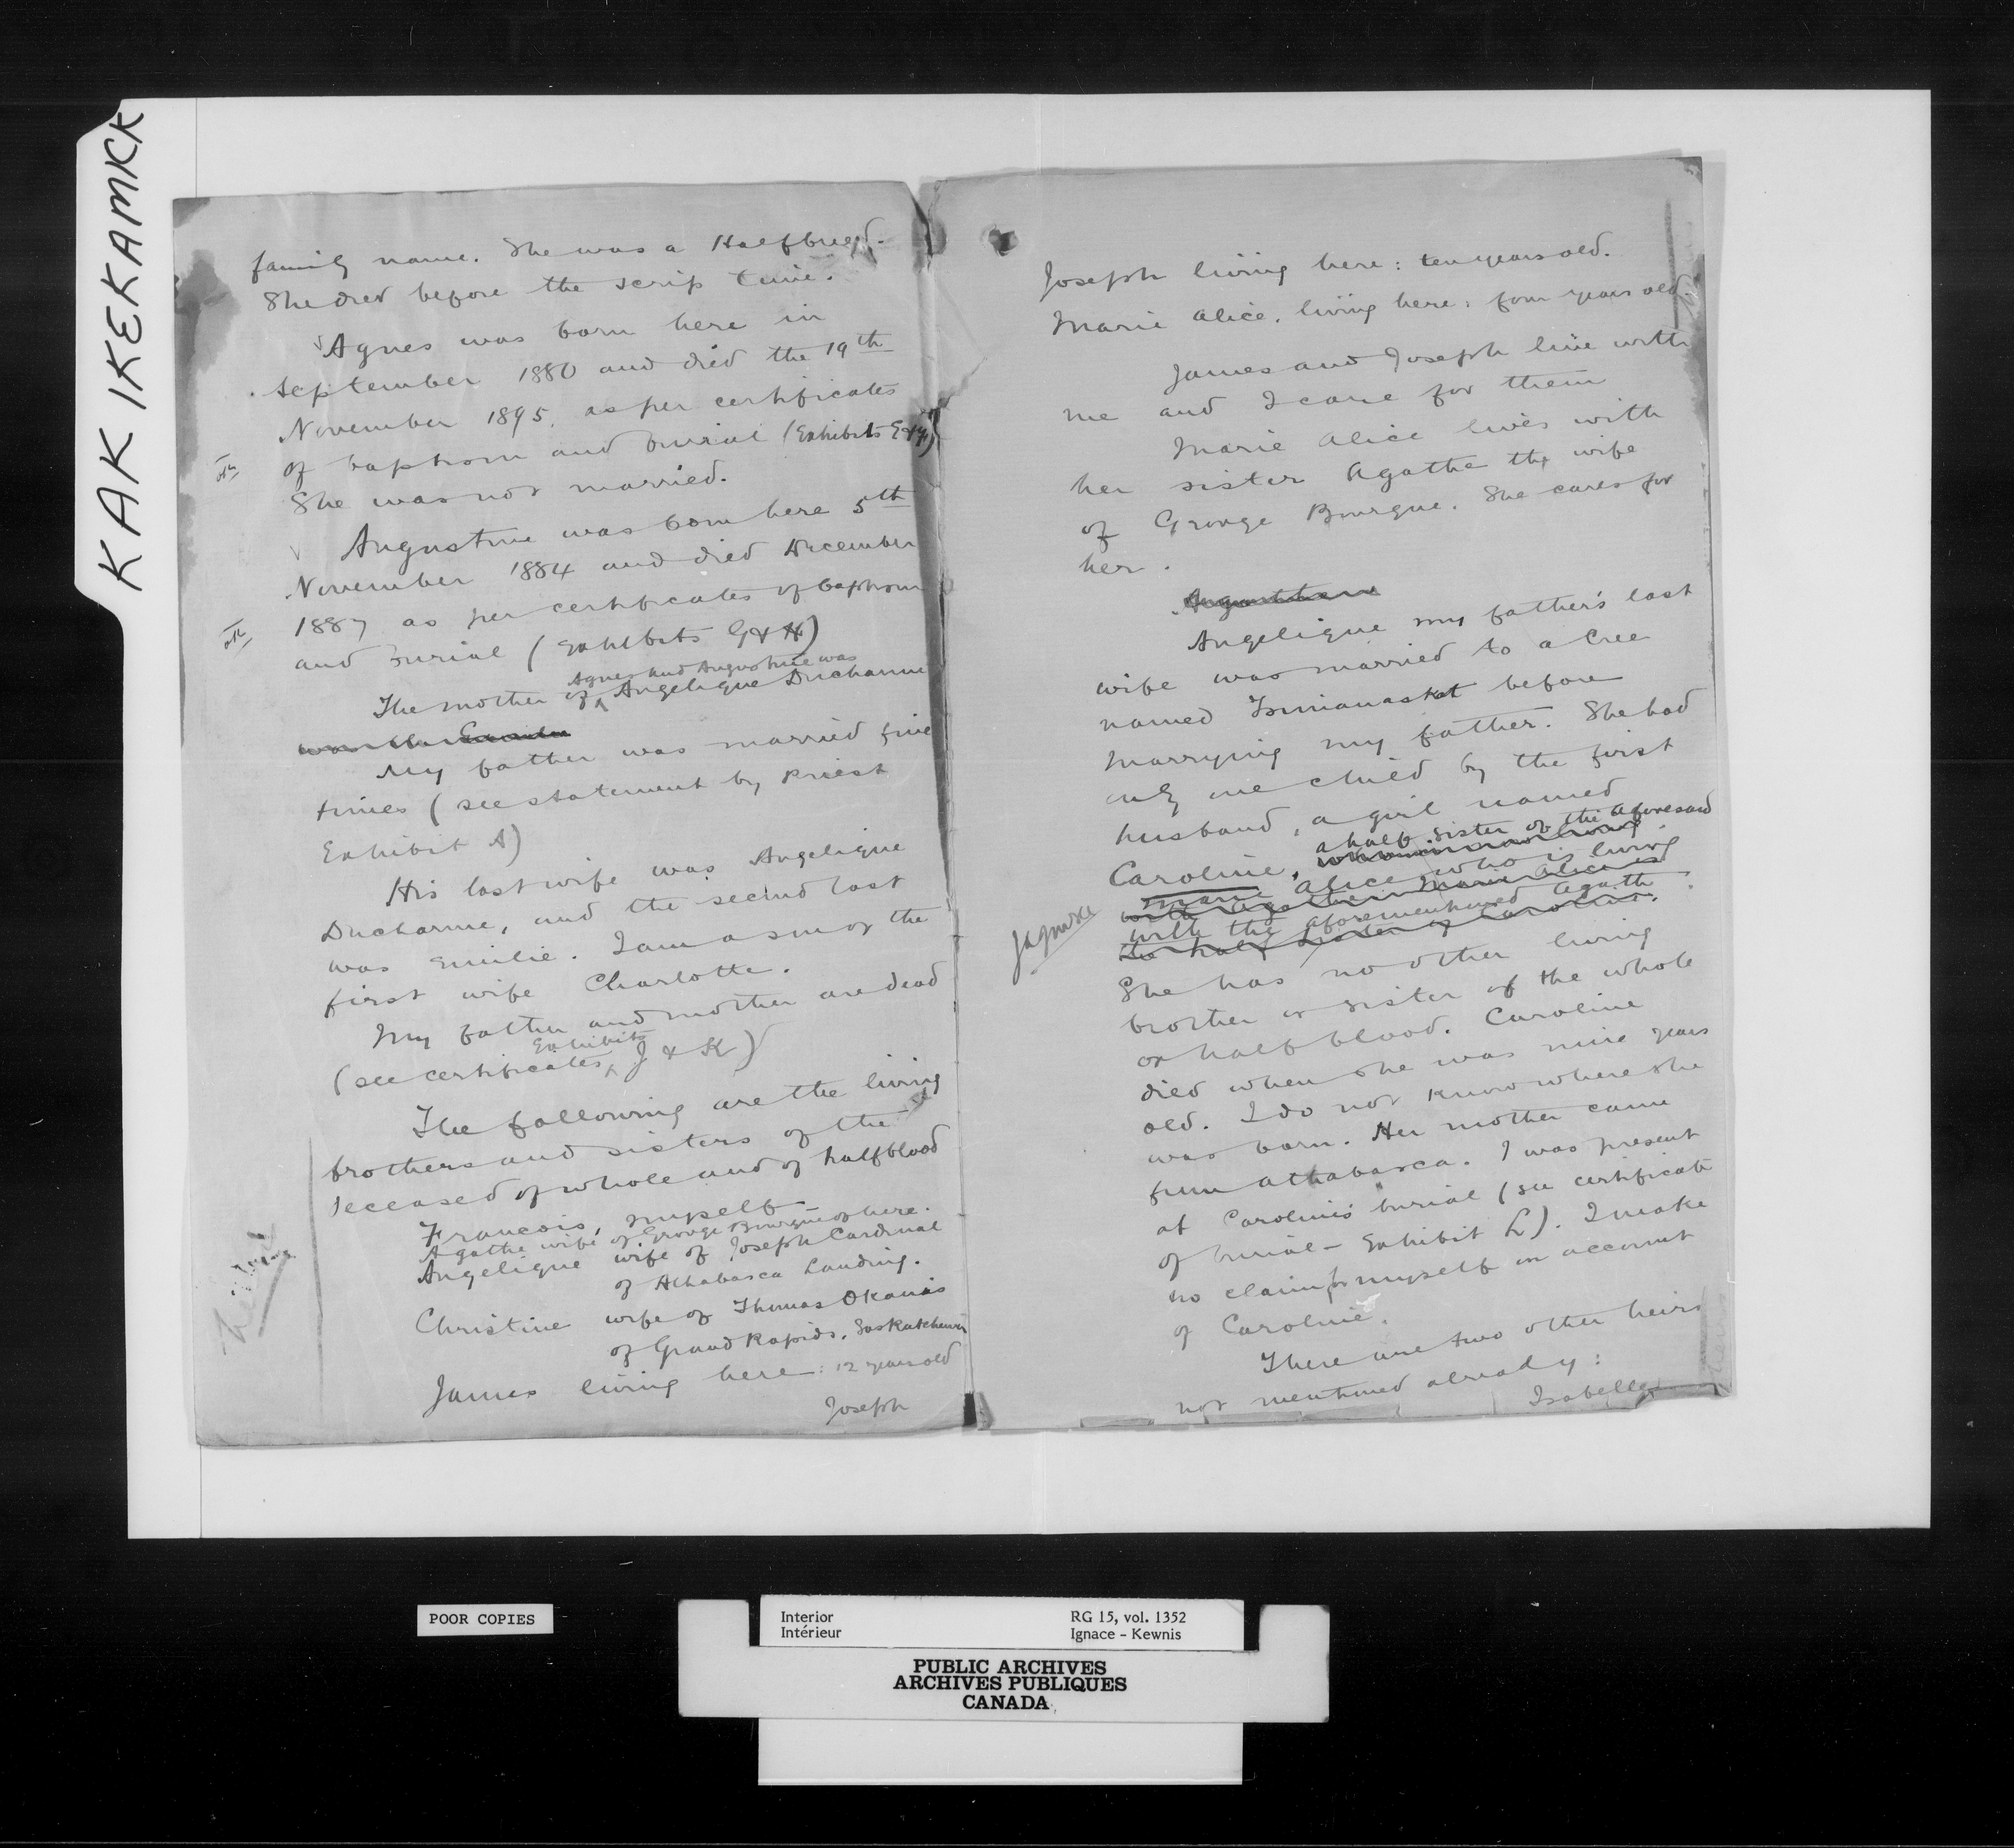 KAK IKEKAMICK
family name. She was a Halfbreed.
She died before the scrip time.
Agnes was born here in
September 1880 and died the 19th
November 1895, as per certificates
of baptism and burial (Exhibits E & F)
She was not married.
Augustine was born here 5th
November 1884 and died December
1887 as per certificates of baptism
and burial (Exhibits G & H)
Agnes and Augustine was
The mother of Angelique Ducharme
My father was married five
times (see statement by Priest
Exhibit A)
His last wife was Angelique
Ducharme, and the second last
was Emilie. I am a son of the
first wife Charlotte.
My father and mother are dead
Exhibits
(see certificates, J & K)
The following are the living
brothers and sisters of the
deceased of whole and of halfblood
Francois, myself
Agathe wife of George Bourque of here.
Angelique wife of Joseph Cardinal
of Athabasca Landing.
Christine wife of Thomas Okanas
of Grand Rapids, Saskatchewan
James living here: 12 years old
Joseph
Joseph living here: ten years old.
Marie Alice, living here: four years old.
James and Joseph live with
me and I care for them
Marie Alice lives with
her sister Agathe the wife
of George Bourque. She cares for
her.
Angelique my father's last
wife was married to a Cree
named before
marrying my father. She had
only one child by the first
husband, a girl named
a half sister of the aforesaid
Caroline,
Marie Alice who is living
with the aforementioned Agathe
She has no other living
brother or sister of the whole
or half blood. Caroline
died when she was nine years
old. I do not know where she
was born. Her mother came
from Athabasca. I was present
at Caroline's burial (see certificate
of burial - Exhibit L). I make
no claim for myself on account
of Caroline.
There are two other heirs
not mentioned already:
Isabella
POOR COPIES
Interior
Intérieur
RG 15, vol. 1352
Ignace - Kewnis
PUBLIC ARCHIVES
ARCHIVES PUBLIQUES
CANADA